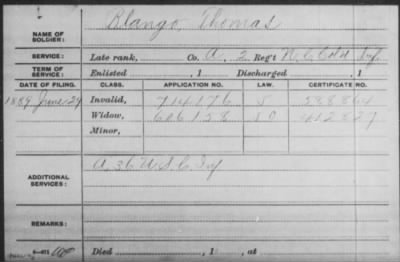 Blango, Thomas
NAME OF SOLDIER:
SERVICE: Late rank, Co. A, 2 Reg't N.C. Cold Inf.
TERM OF SERVICE: Enlisted , 1 Discharged , 1
DATE OF FILING. CLASS. APPLICATION NO. LAW. CERTIFICATE NO.
1889 June 29 Invalid, 714176 5 588864
Widow, 606158 50 412827
Minor,
A, 36 U.S.C. Inf
ADDITIONAL SERVICES:
REMARKS:
Died , 1 , at